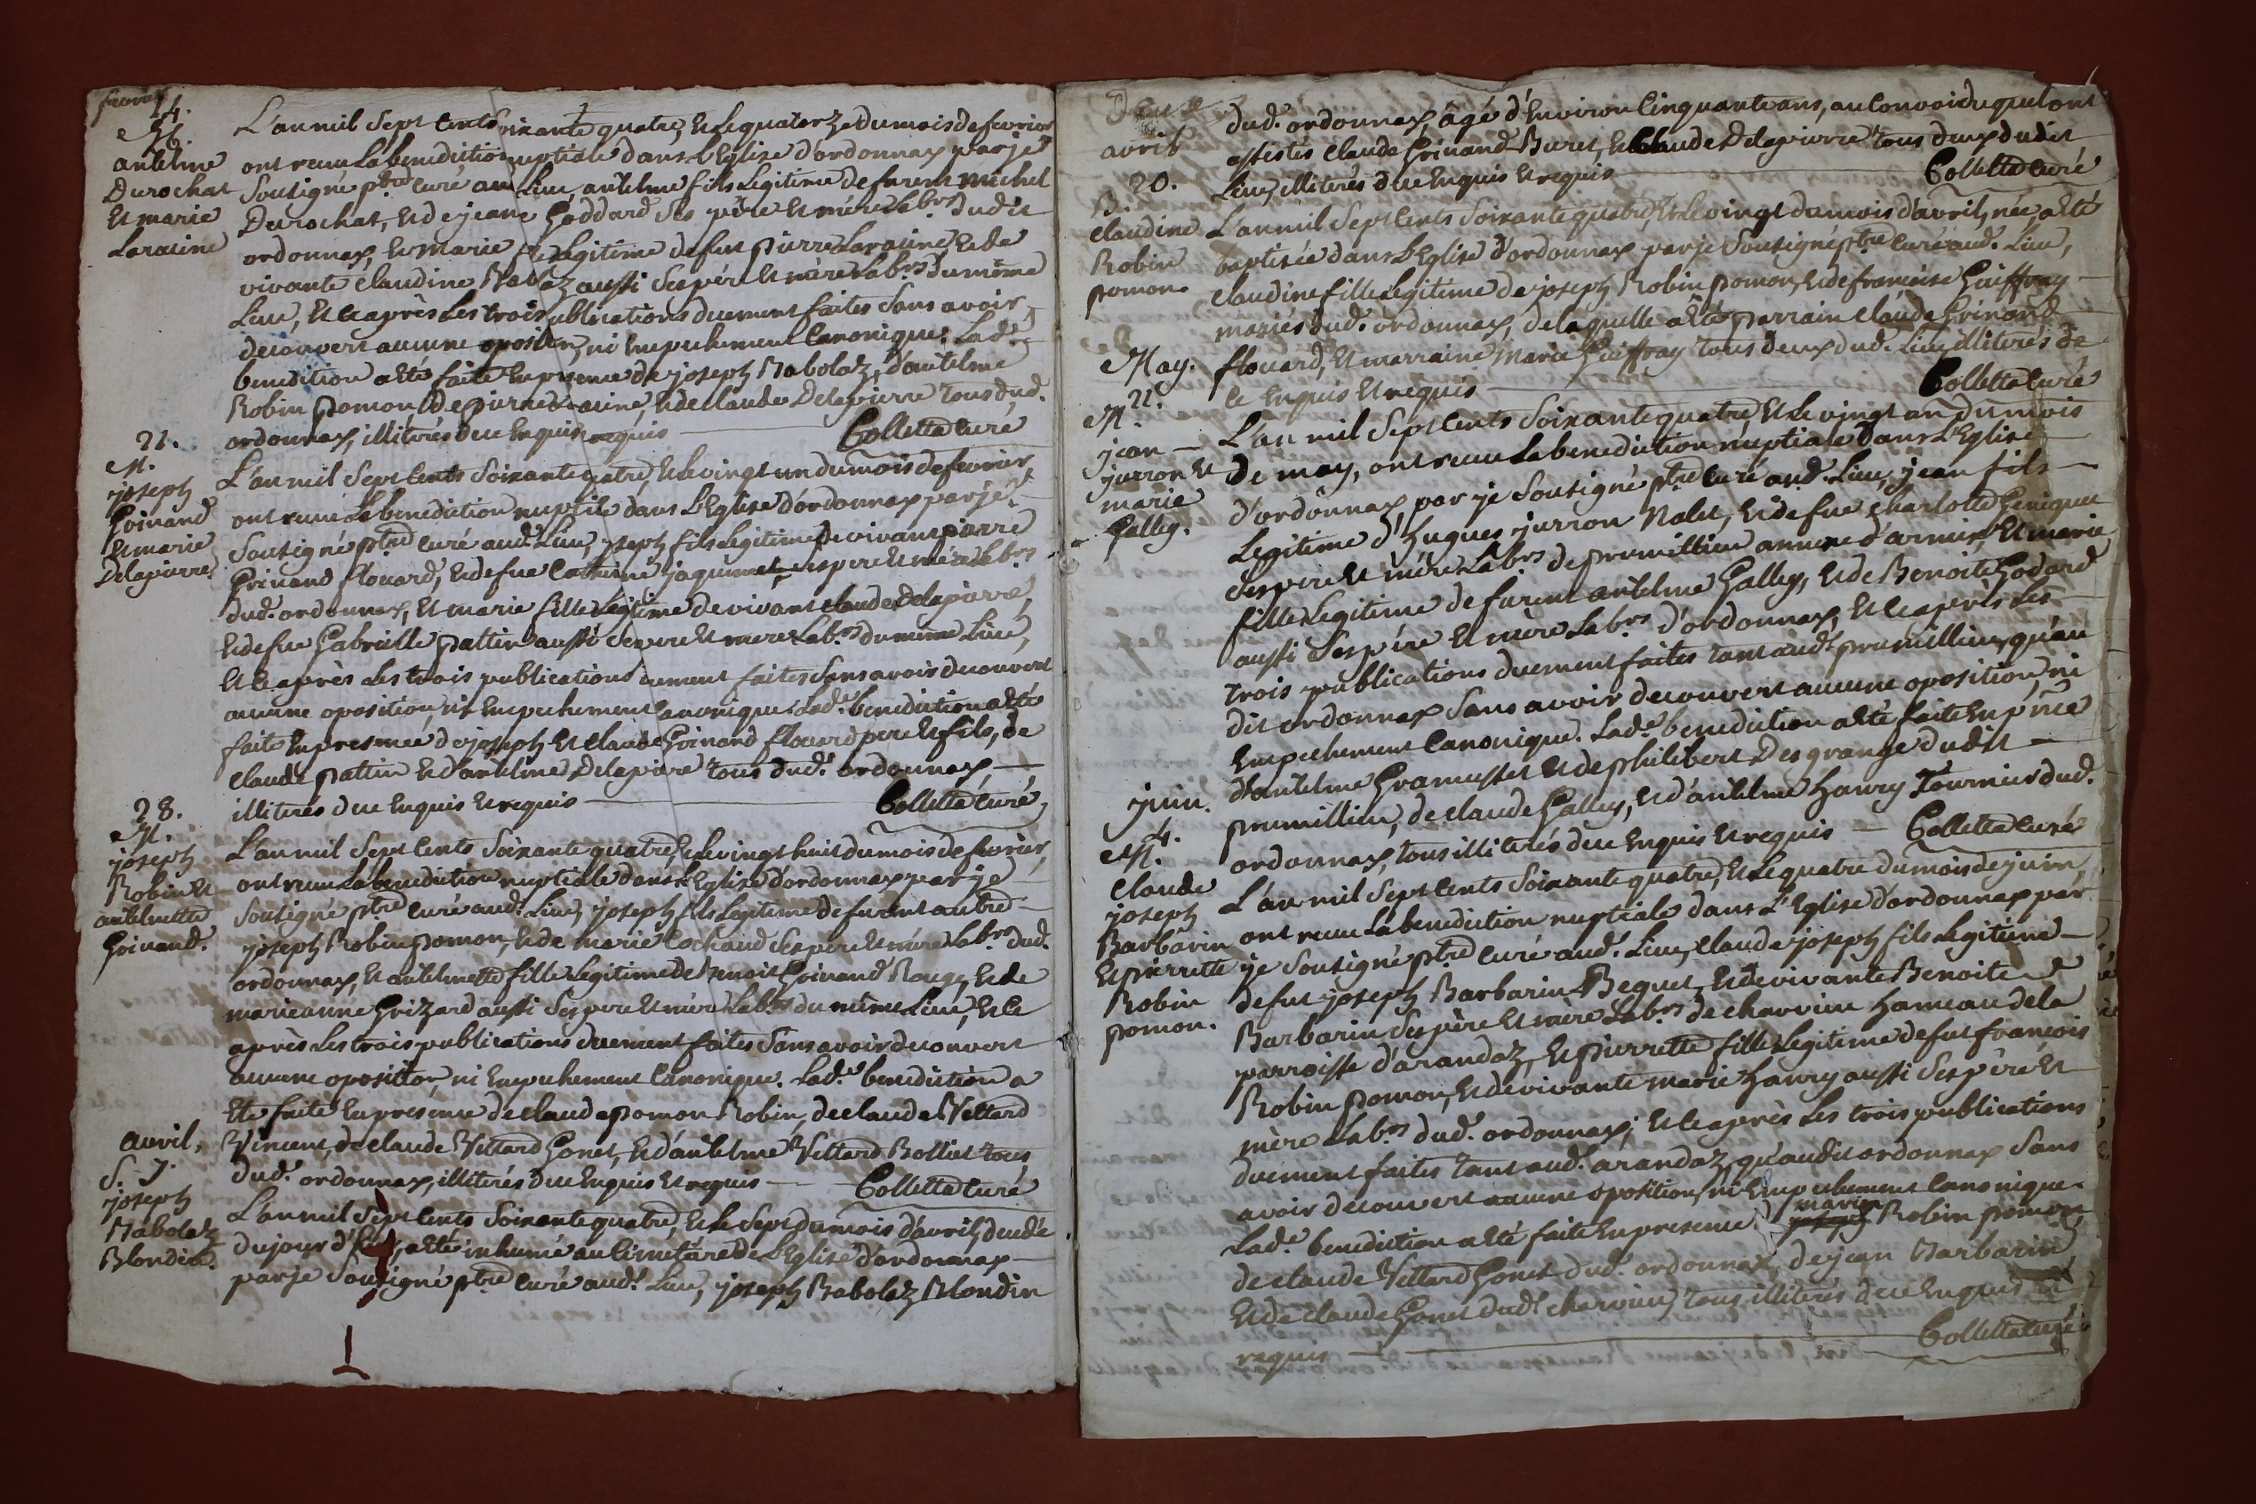 fevrier
14.
M.
antelme
Durochat
et marie
Laraine
L'an mil sept cents soixante quatre, et le quatorze du mois de fevrier
ont reçu La benediction nuptiale dans L'Eglise d'ordonnax par je
soutigné ptre curé aud. Lieu, antelme fils Legitime de furent michel
Durochat, et de jeane Goddard ses père et mère Labrs dudit
ordonnax, et marie fille Legitime de fut pierre Laraine et de
vivante claudine Rabolaz aussi ses père et mère Labrs du même
Lieu, et ce après Les trois publications duement faites sans avoir
decouvert aucune oposition, ni Empechement Canonique. Lad.e
benedition a été faite En presence de joseph Rabolaz, d'antelme
Robin pomon, de pierre Laraine, et de claude Delapierre tous dud.
ordonnax, illiterés de ce Enquis requis Colletta curé
21.
M.
joseph
Grinand
et marie
Delapierre
L'an mil sept cents soixante quatre, et Le vingt un du mois de fevrier,
ont reçu La benediction nuptile dans L'Eglise d'ordonnax par je
soutigné ptre curé aud. Lieu, joseph fils Legitime de vivant pierre
Grinand flouard, et de fue Catherine jaquemet ses pere et mére Labrs
dud. ordonnax, et marie fille Legitime de vivant claude Delapierre,
et de fue Gabrielle pattin aussi ses pere et mere Labrs du meme Lieu,
et ce après Les trois publications duement faites sans avoir decouvert
aucune oposition, ni Empechement Canonique. Lad.e benediction a été
faite En presence de joseph et claude Grinand flouard pere et fils, de
claude pattin et d'antelme Delapiere tous dud. ordonnax,
illiterés de ce Enquis et requis Colletta curé
28.
M.
joseph
Robin et
antelmette
Grinand.
L'an mil sept cents soixante quatre, et Le vingt huit du mois de fevrier,
ont reçu La benediction nuptiale dans L'Eglise d'ordonnax par je
soutigné ptre curé aud. Lieu, joseph fils Legitime de furent autre
joseph Robin pomon, et de marie Cochand ses pere et mére Labrs dud.
ordonnax, et antelmette fille Legitime de Benoit Grinand Rouge, et de
marieanne Grizard aussi ses pere et mére Labrs du même Lieu, et ce
après Les trois publications duement faites sans avoir decouvert
aucune oposition, ni Empechement Canonique. Lad.e benediction a
été faite En présence de claude pomon Robin, de claude Vettard
Vincent, de claude Vettard Gonet, et d'antelme Vettard Bolliet tous
dud. ordonnax, illiterés de ce Enquis et requis Colletta curé
avril,
S. 7.
joseph
Rabolaz
Blondin.
L'an mil sept cents soixante quatre, et Le sept du mois d'avril, decedé
du jour d'hier, a été inhumé au Cimetière de L'Eglise d'ordonnax
par je soutigné ptre curé aud. Lieu, joseph Rabolaz Blondin
avril
dud. ordonnax âgé d'Environ Cinquante ans, au Convoi duquel ont
assistés claude Grinand Buret, et claude Delapierre tous deux dudit
Lieu, illiterés de ce Enquis et requis Colletta curé
20.
B.
claudine
Robin
pomon.
L'an mil sept cents soixante quatre, et Le vingt du mois d'avril, née, a été
baptisée dans L'Eglise d'ordonnax par je soutigné ptre curé aud. Lieu,
claudine fille Legitime de joseph Robin pomon, et de françoise Guiffray
mariés dud. ordonnax, de laquelle a été parrain claude Grinand
flouard, et marraine Marie Guiffray tous deux dud. Lieu illiterés de
ce Enquis et requis Colletta curé
May.
21.
M.
jean
jurron et
marie
Galley.
L'an mil sept cents soixante quatre, et Le vingt un du mois
de may, ont reçu La benediction nuptiale dans L'Eglise
d'ordonnax, par je soutigné ptre curé aud. Lieu, jean fils
Legitime d'hugues jurron Nalet, et de fue charlotte Genique
ses pere et mère Labrs de premillieu annexe d'armix, et marie
fille Legitime de furent antelme Galley, et de Benoite Godard
aussi ses père et mère Labrs d'ordonnax, et ce après Les
trois publications duement faites tant aud. premillieu, qu'au
dit ordonnax sans avoir decouvert aucune oposition, ni
Empechement Canonique. Lad.e benediction a été faite En pnce
d'antelme Gramusset et de philibert Desgrange dudit
premillieu, de claude Galley, et d'antelme hanry Tournier dud.
ordonnax, tous illiterés de ce Enquis et requis Colletta curé
juin.
4.
M.
claude
joseph
Barbarin
et pierrette
Robin
pomon.
L'an mil sept cents soixante quatre, et Le quatre du mois de juin,
ont reçu La benediction nuptiale dans L'Eglise d'ordonnax par
je soutigné ptre curé aud. Lieu, claude joseph fils Legitime
de fut joseph Barbarin Bequet, et de vivante Benoite
Barbarin ses père et mere Labrs de charvieu hameau de la
parroisse d'arandaz, et pierrette fille Legitime de fut françois
Robin pomon, et de vivante marie hanry aussi ses père et
mère Labrs dud. ordonnax; et ce après Les trois publications
duement faites tant aud. arandaz, qu'audit ordonnax sans
avoir decouvert aucune oposition, ni Empechement Canonique.
Lad.e benediction a été faite En presence Robin pomon,
de claude Vettard Gonet dud. ordonnax, de jean Barbarin
et de claude Gonet dud. charvieu, tous illiterés de ce Enquis et
requis Colletta curé